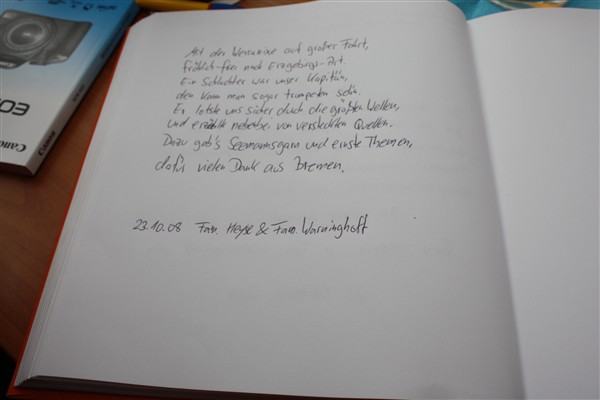 Mit der Weranixe auf großer Fahrt,
fröhlich-frei nach Erzgebirgs-Art.
Ein Schlachter war unser Kapitän,
den kann man sogar trompeten sehn.
Er lotste uns sicher durch die größten Wellen,
und erzählte nebenbei von versteckten Quellen.
Dazu gab's Seemannsgarn und ernste Themen,
dafür vielen Dank aus Bremen.
23.10.08 Fam. Heyse & Fam. Warninghoff
Canon
EOS
Canon